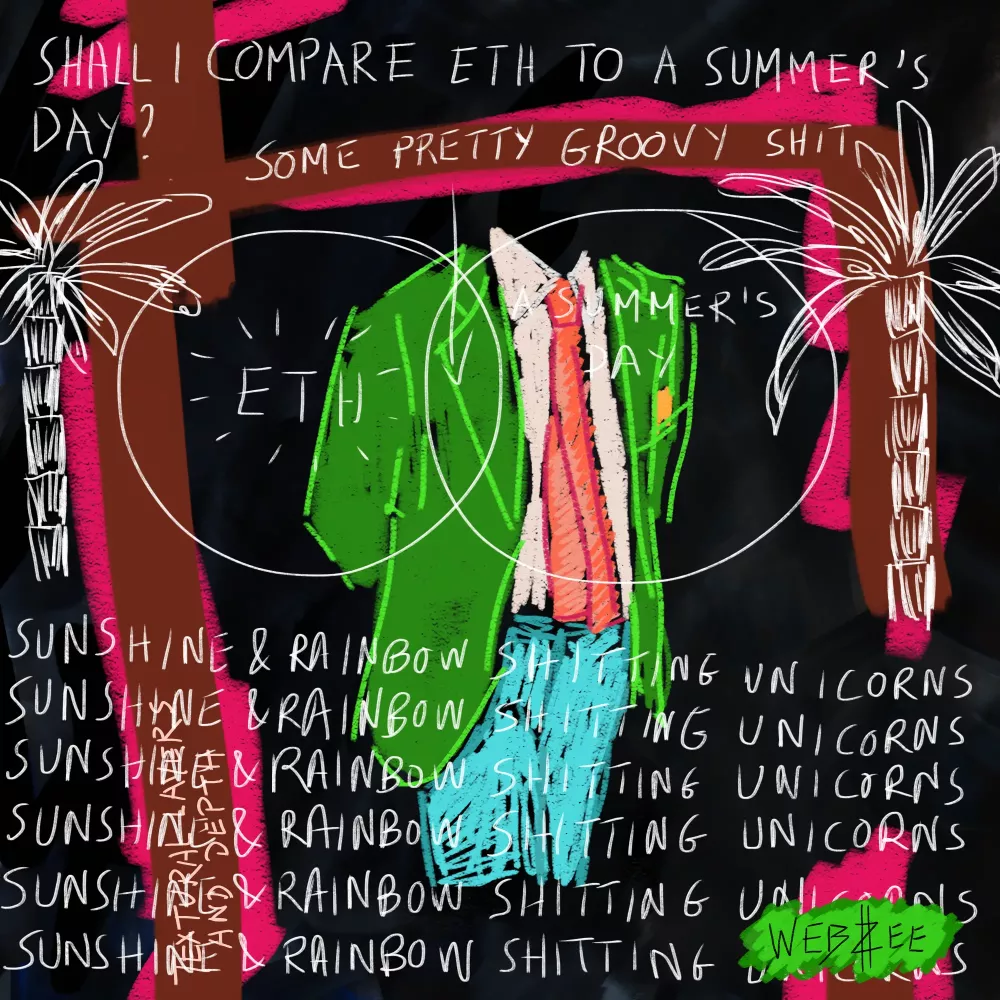 SHALL I COMPARE ETH TO A SUMMER'S
DAY?
SOME PRETTY GROOVY SHIT
ETH
A SUMMER'S
DAY
SUNSHINE & RAINBOW SHITTING UNICORNS
SUNSHINE & RAINBOW SHITTING UNICORNS
SUNSHINE & RAINBOW SHITTING UNICORNS
SUNSHINE & RAINBOW SHITTING UNICORNS
SUNSHINE & RAINBOW SHITTING UNICORNS
SUNSHINE & RAINBOW SHITTING UNICORNS
TEXTURAL LAYERS
AND DEPTH
WEBZEE